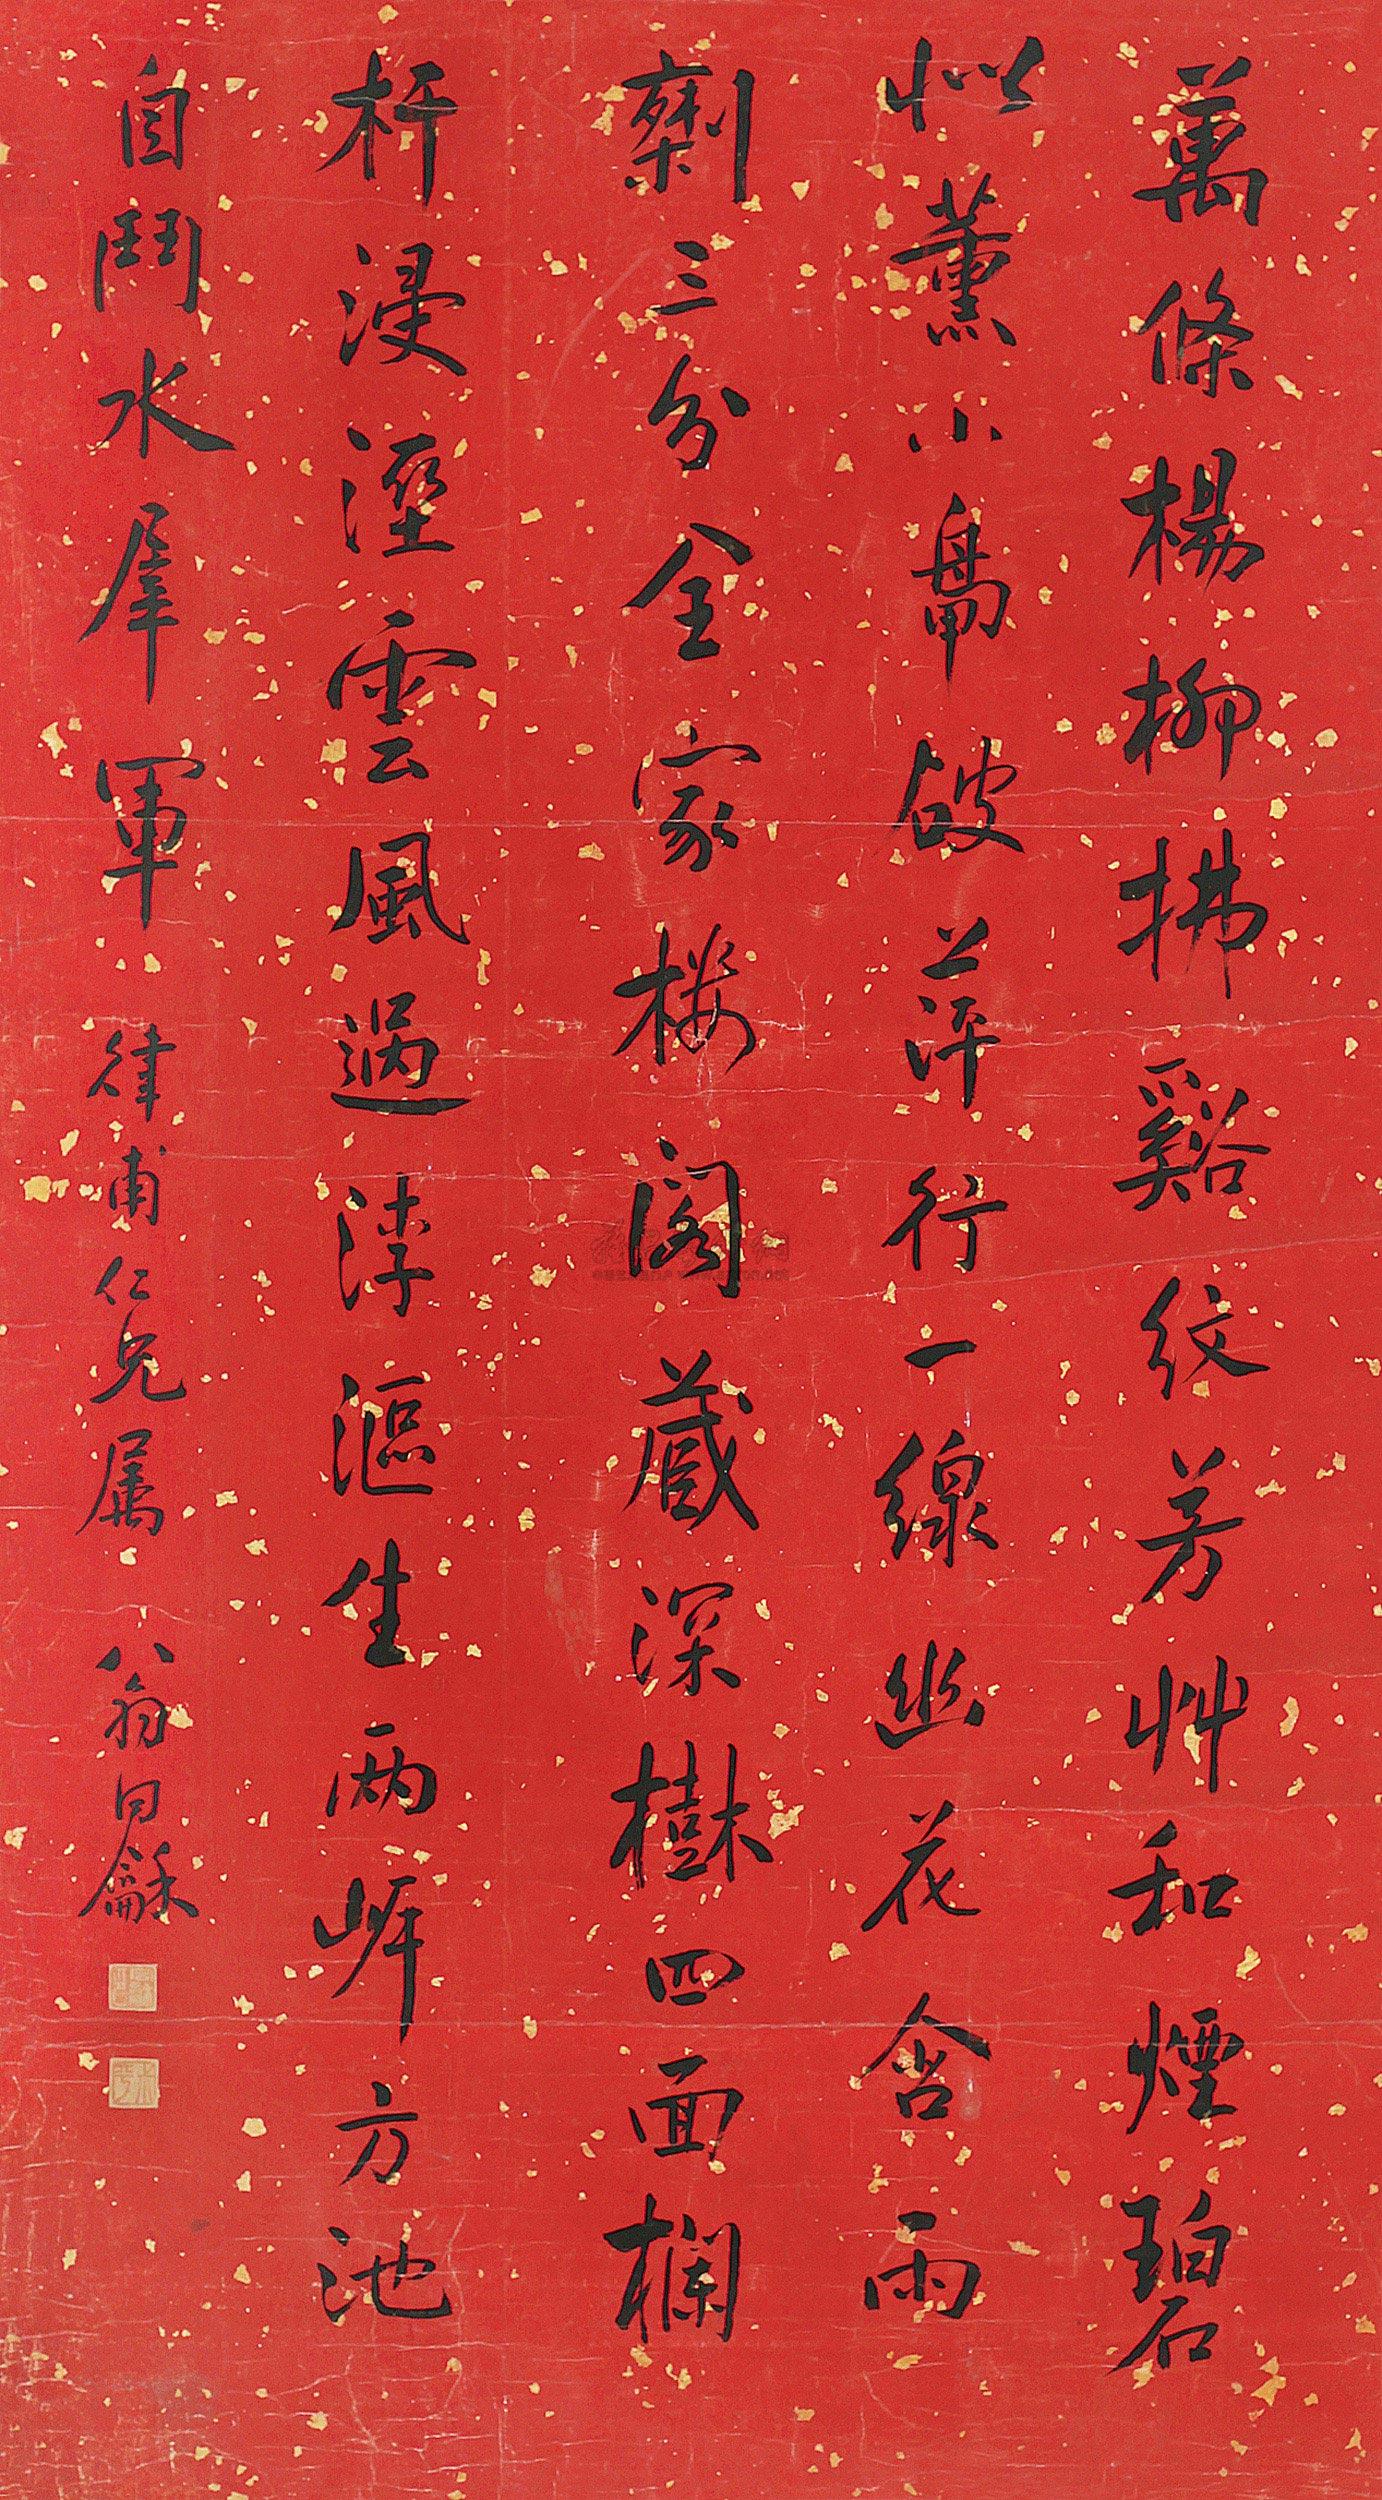 萬條楊柳拂谿紋芳艸和煙碧
似薰小鳥破萍行一線幽花含雨
劑三分全家樓閣藏深樹四面欄
杆浸溼雲風過浡漚生兩岸方池
自鬥水犀軍 律甫仁兄屬 八翁同龢